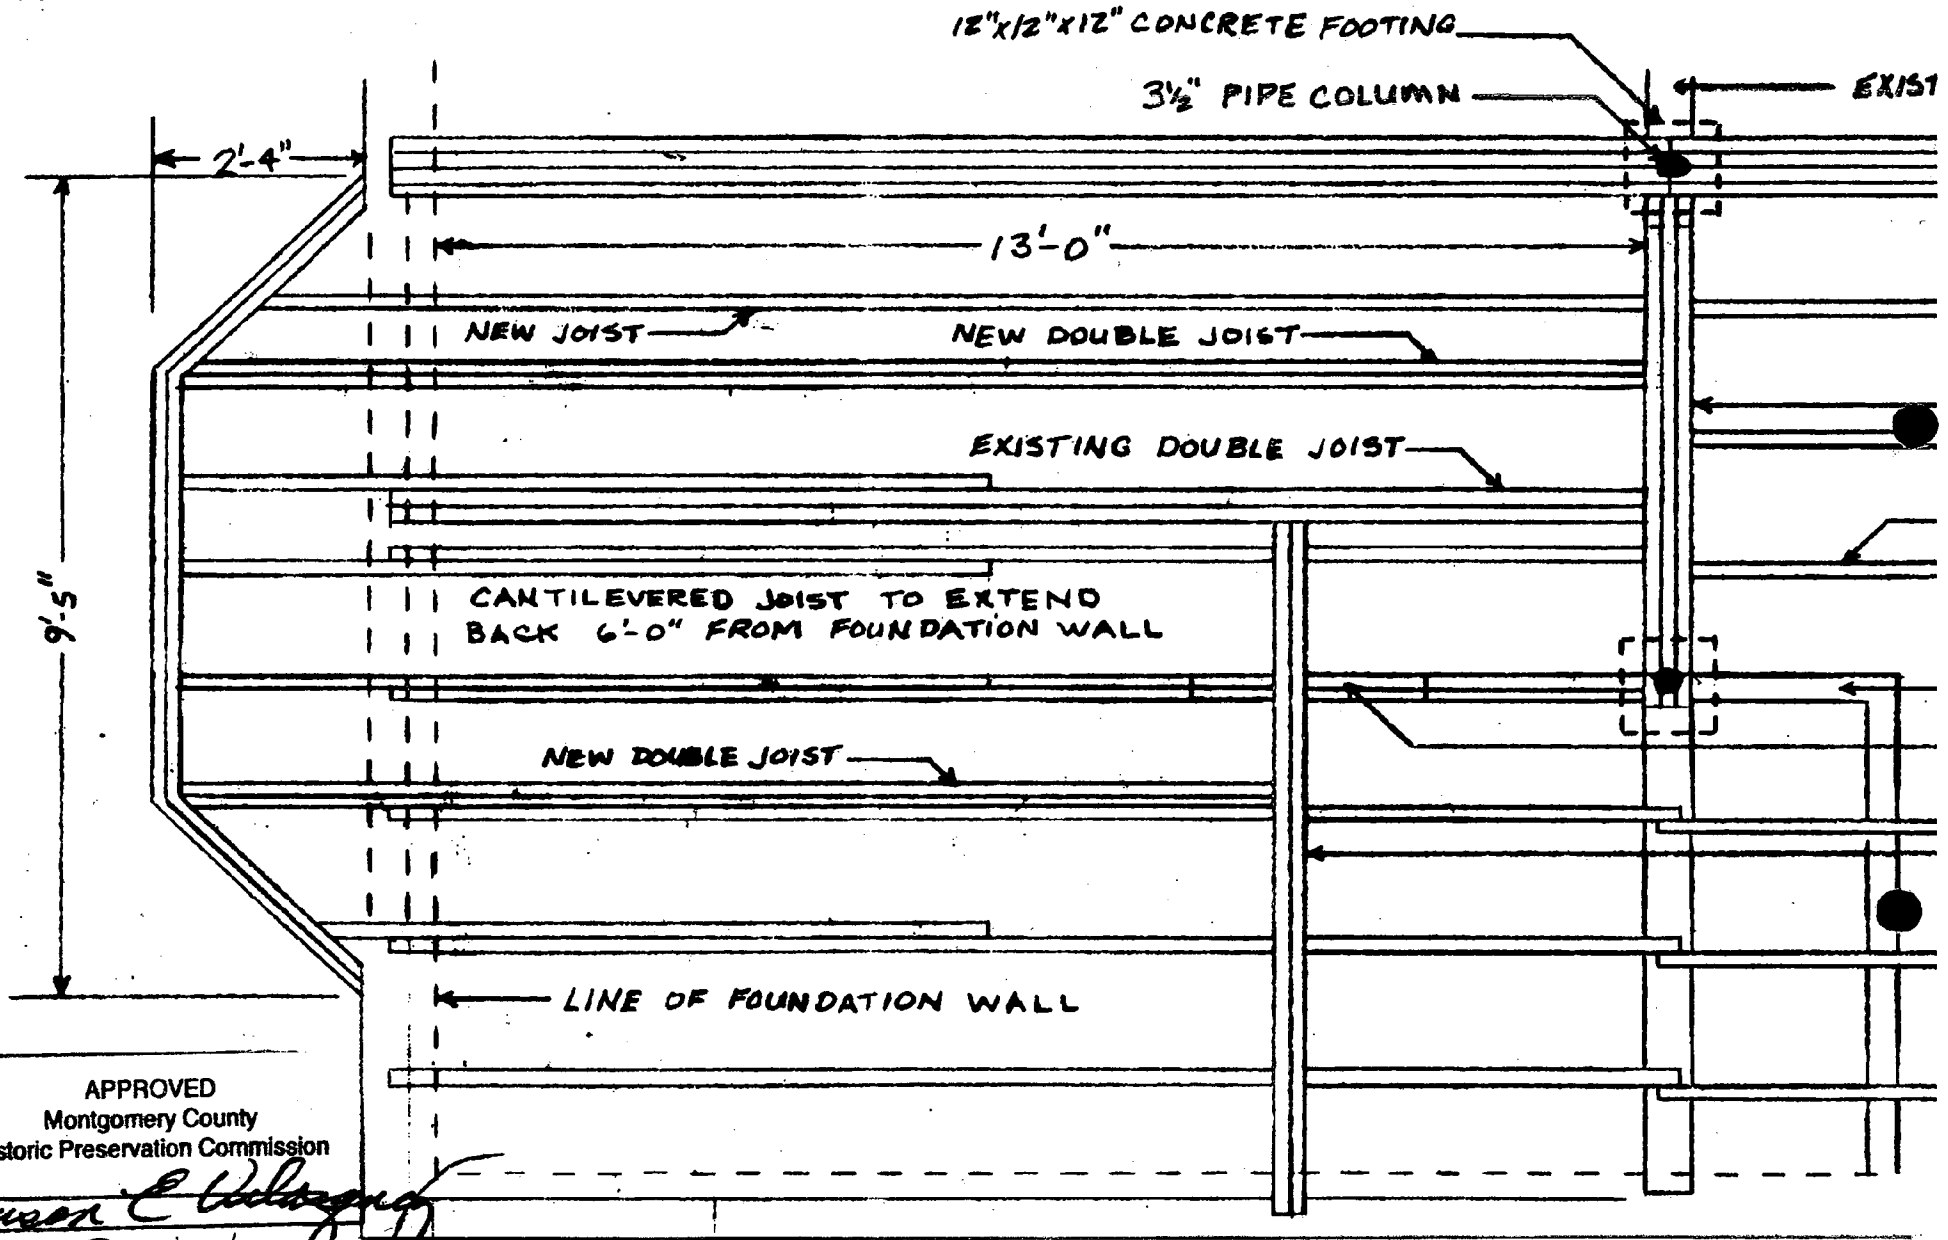 12"x12"x12" CONCRETE FOOTING
3½" PIPE COLUMN
EXIST
2'-4"
13'-0"
NEW JOIST
NEW DOUBLE JOIST
EXISTING DOUBLE JOIST
CANTILEVERED JOIST TO EXTEND
BACK 6'-0" FROM FOUNDATION WALL
9'-5"
NEW DOUBLE JOIST
LINE OF FOUNDATION WALL
APPROVED
Montgomery County
storic Preservation Commission